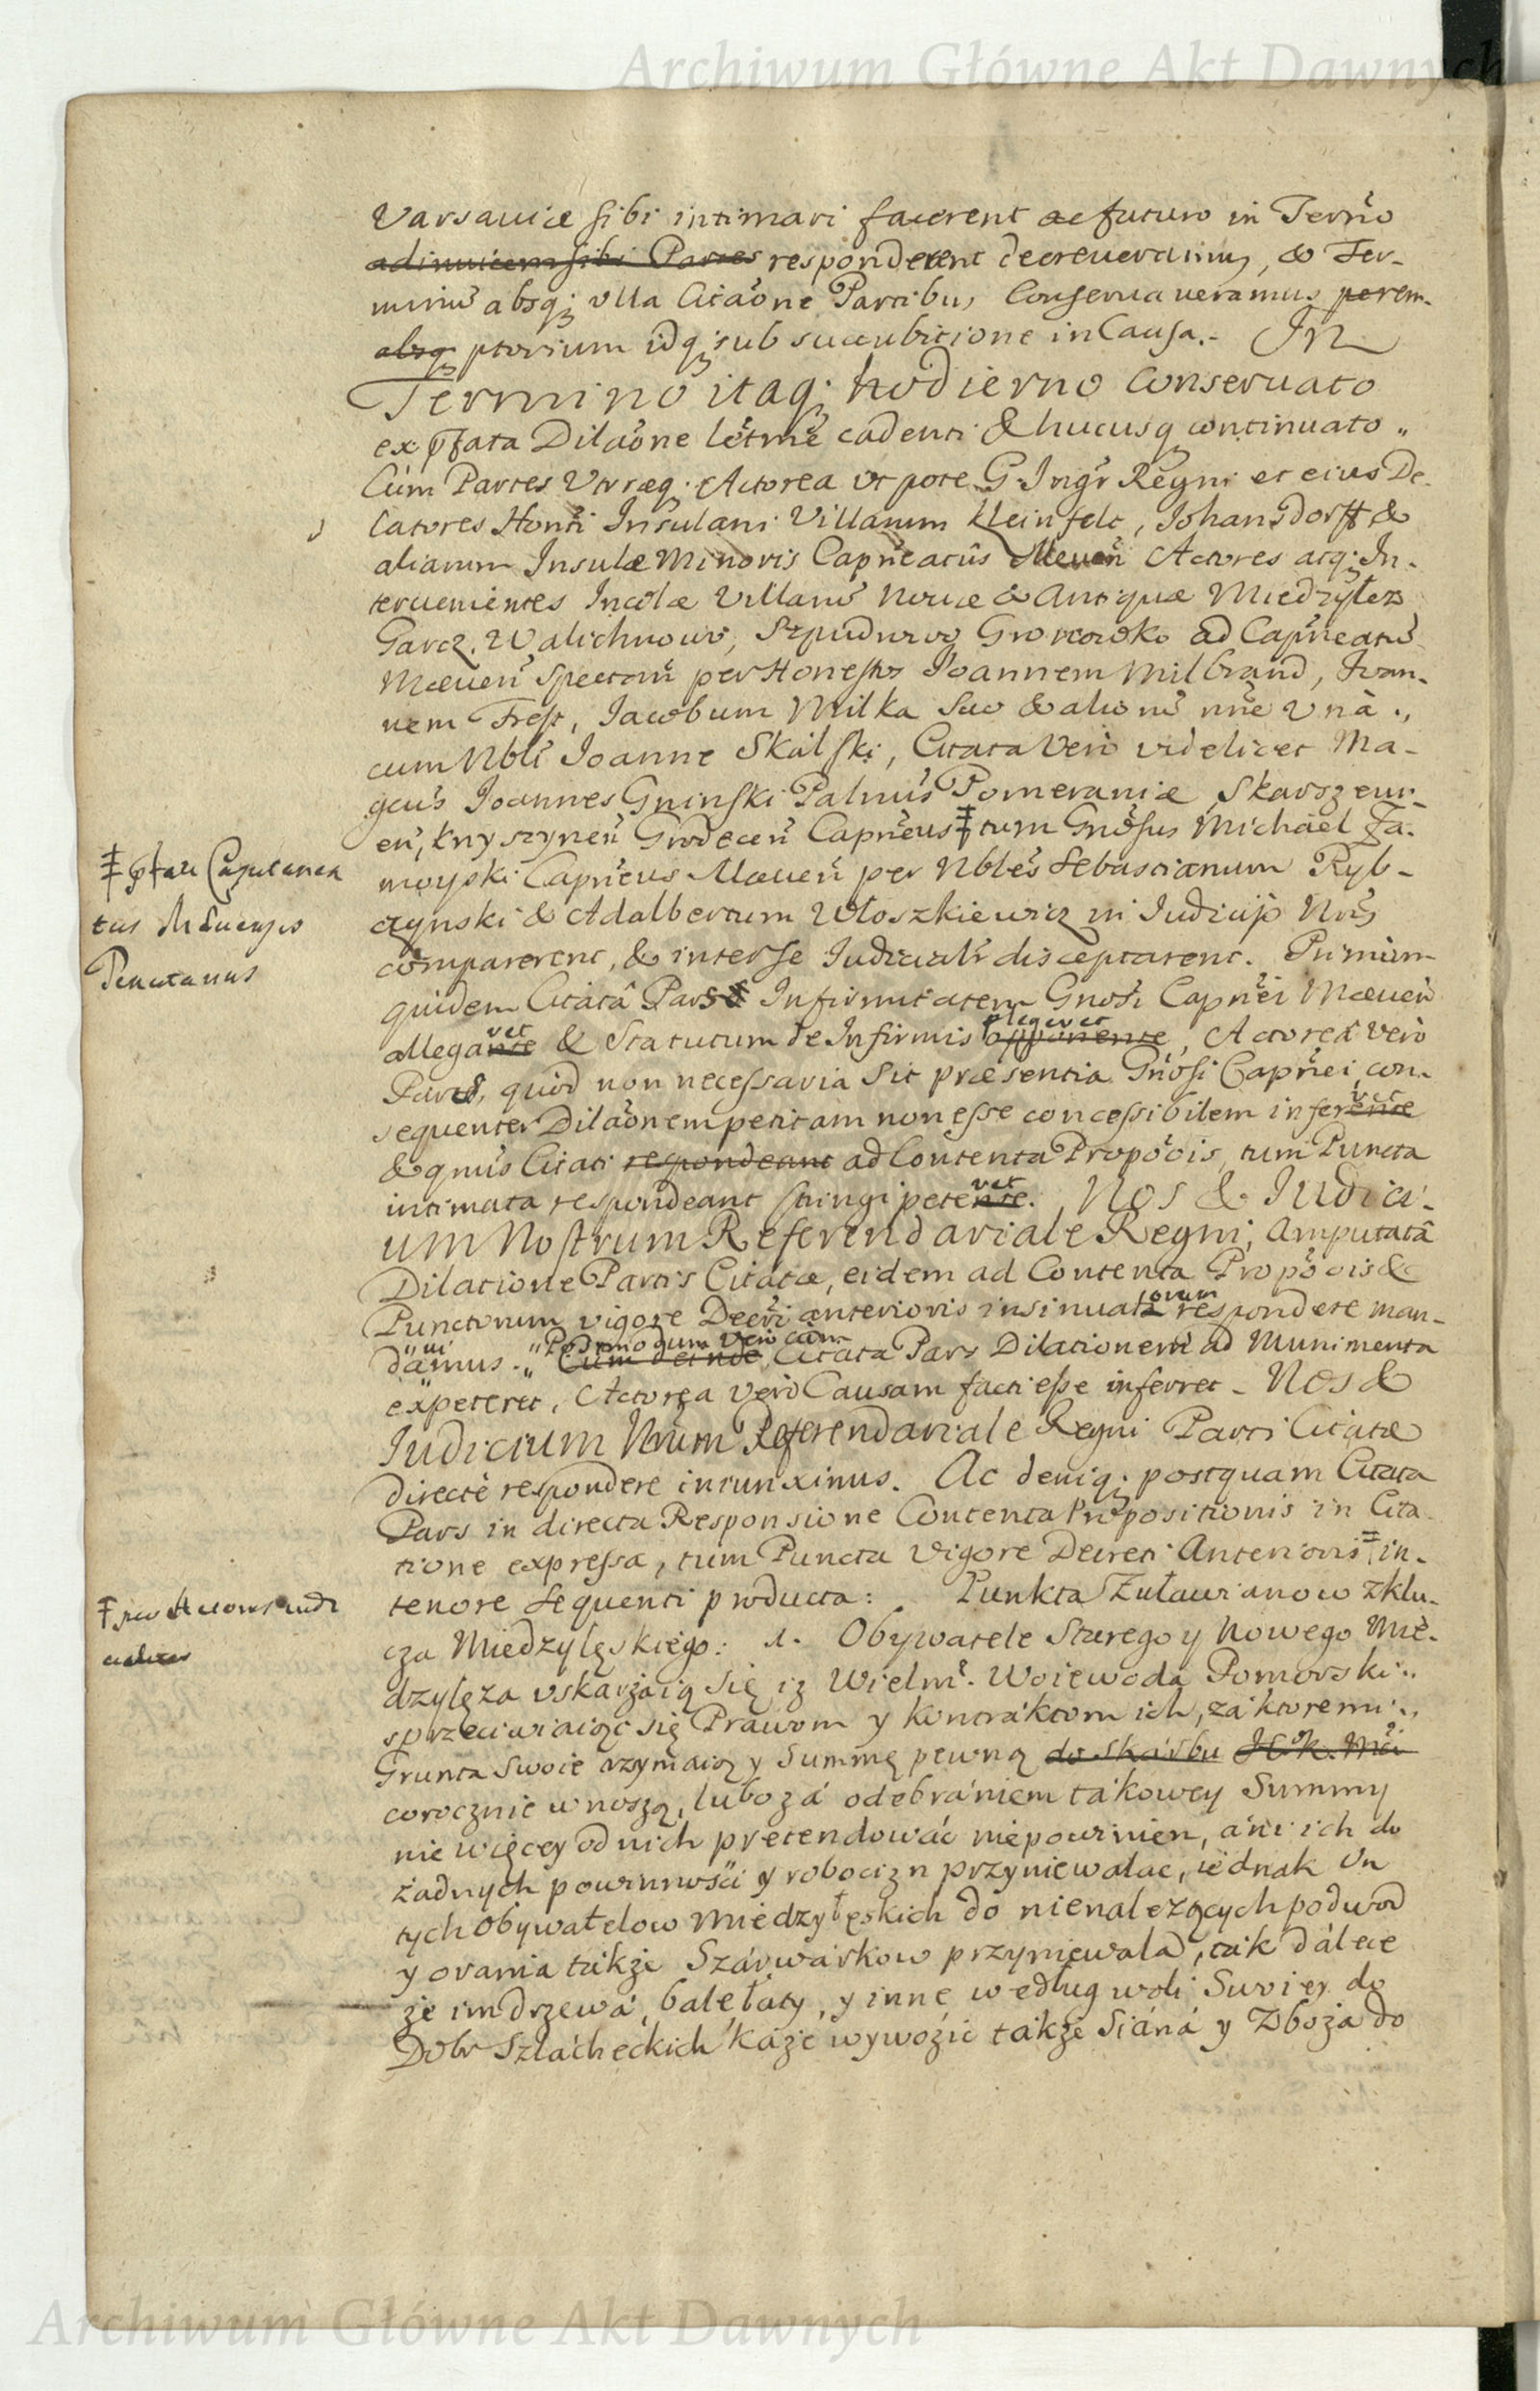 Archiwum Główne Akt Dawnych
Varsaviæ sibi intimari facerent ac futuro in Terno
adinuicem sibi Partes responderent decreveramus, & Ter-
minū absq; vlla Citaōne Partibus Conservaveramus perem-
absq ptorium idq; sub succubitione in Causa.- In
Termino itaq; hodierno conservato
ex pfata Dilaōne letmē cadenti & hucusq continuato „
Cùm Partes Utræq; Actorea vt pote G. Ingr Regni et eius De-
latores Honti Insulani Villarum Kleinfelt, Johansdorff &
aliarum Insulæ Minoris Capneatûs Meven Actores atq; In-
tervenientes Incolæ Villarū Novæ & Antiquæ Miedzyłez
Garcz. Walichnowo, Szpudowo Gronowsko ad Capneatū
Mæven Spectan per Honestos Joannem Milbrand, Joan-
nem Frest, Jacobum Milka suo & alionū nnē Unà .,
cum Nbli Joanne Skalski, Citata Verò videlicet Ma-
gcus Joannes Gninski Palnus Pomeraniæ Skarszew-
en, Knyszynen Grodecen Capneus ‡, tum Gnosus Michael Za-
‡ pfati Capitanea
moyski Capneus Mæven per Nbles Sebastianum Ryb-
tus Mevensis
czynski & Adalbertum Włoszkiewicz in Judicijo Nro
comparerent, & inter se Judicialr disceptarent. Primùm
quidem Citatâ Pars Infirmitatem Gnosi Capnei Mæven
vet pleg eret
allegante & Statutum de Infirmis opponente, Actorea verò
Pars, quòd non necessaria sit præsentia Gnosi Capnei, con-
sequenter Dilaōnem petitam non esse concessibilem inferente
& qnus Citati respondeant ad Contenta Propōois, tum Puncta
vet
intimata respondeant stringi petente. Nos & Judici-
um Nostrum Referendariale Regni, Amputatâ
Dilatione Partis Citatæ, eidem ad Contenta Propōois &
orum
Punctorum vigore Decri anterioris insinuata respondere man-
Postmodum verò cùm
damus. „ Cum deinde, Citata Pars Dilationem ad Munimenta
expeteret, Actorea verò Causam facti esse inferret - Nos &
Judicium Nrum Referendariale Regni Parti Citatæ
directè respondere iniunximus. Ac deniq; postquam Citata
Pars in directa Responsione Contenta Propositionis in Cita-
tione expressa, tum Puncta Vigore Decreti Anterioris ‡ in-
tenore sequenti producta: Punkta Zuławianow zklu-
cza Miedzylęskiego: 1. Obywatele Starego y Nowego Mie-
dzylęza vskarżaią się iz Wielm. Woiewoda Pomorski .,
sprzeciwiaiąc się Prawom y Kontraktom ich, za ktoremi .,
Grunta swoie trzymaią y Summę pewną do skarbu JKMci
corocznie wnoszą, lubo zá odebrániem tákowey Summy
nic więcey od nich pretendować niepowinien, áni ich do
żadnych powinności y robocizn przyniewalac, iednak On
tych Obywatelow Miedzyłęskich do nienależących podwod
y orania tákże Szárwárkow przyniewala, ták dálece
że im drzewá, bale, łaty, y inne według woli Swoiey do
Dobr Szlácheckich káże wywozic także Siáná y Zboża do
Archiwum Główne Akt Dawnych